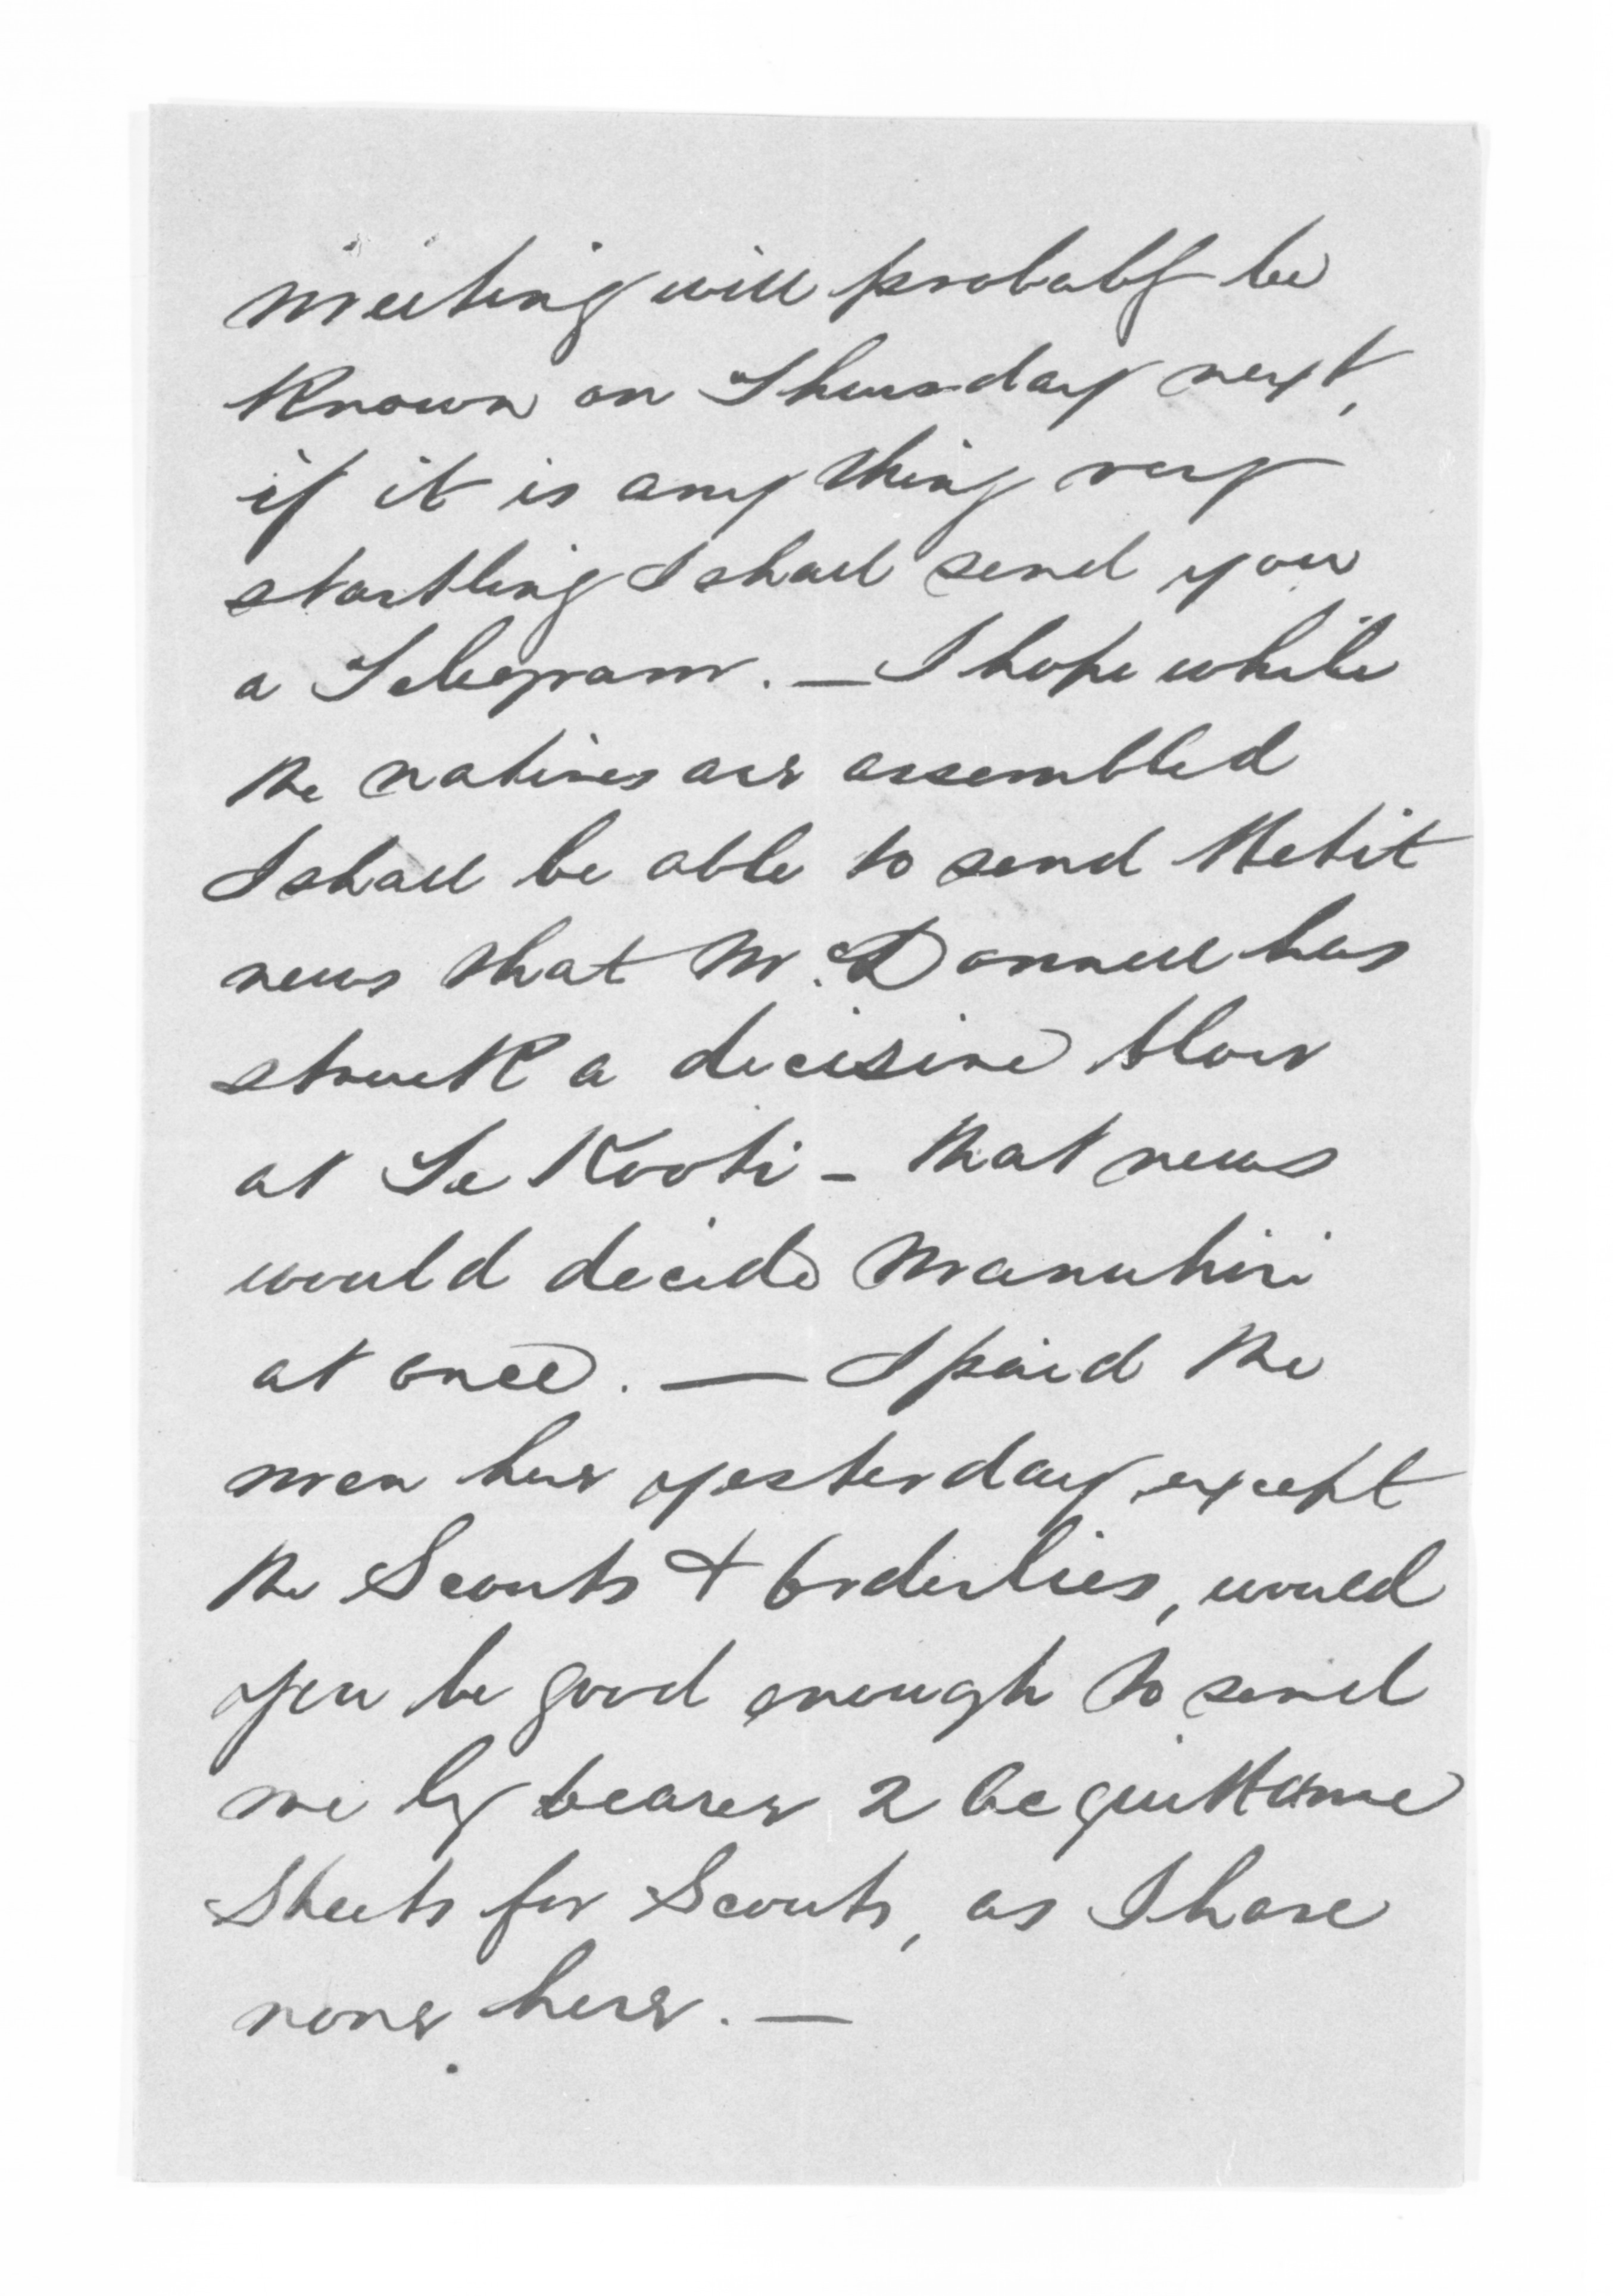 meeting will probably be
Known on Thursday next,
if it is any thing very
startling I shall send you
a Telegram. — I hope while
the natives are assembled
I shall be able to send Hetit
news that McDonnell has
struck a decisive blow
at Te Kooti - that news
would decide Manuhiri
at once. — I paid the
men here yesterday except
the Scouts & Orderlies, would
you be good enough to send
me by bearer 2 Acquittance
Sheets for Scouts, as I have
none here. —